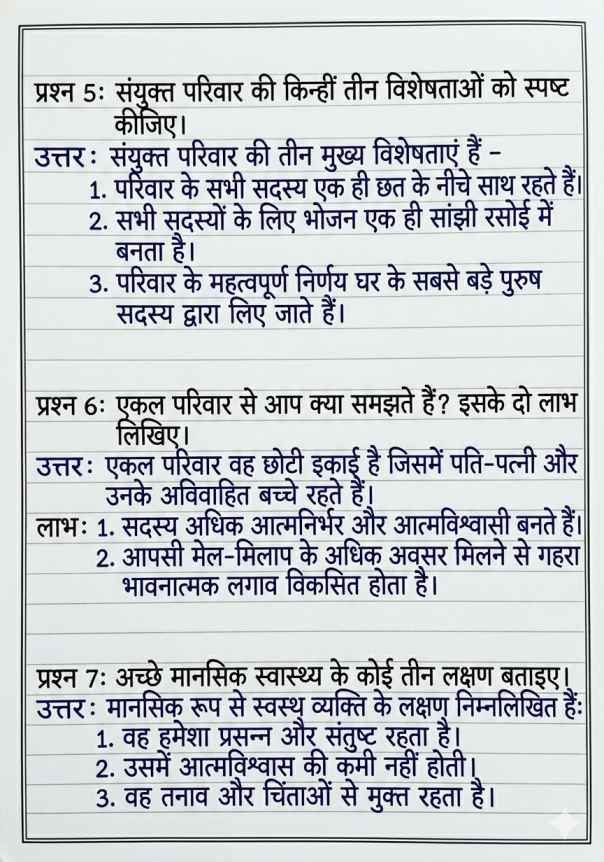 प्रश्न 5: संयुक्त परिवार की किन्हीं तीन विशेषताओं को स्पष्ट
कीजिए।
उत्तर: संयुक्त परिवार की तीन मुख्य विशेषताएं हैं –
1. परिवार के सभी सदस्य एक ही छत के नीचे साथ रहते हैं।
2. सभी सदस्यों के लिए भोजन एक ही सांझी रसोई में
बनता है।
3. परिवार के महत्वपूर्ण निर्णय घर के सबसे बड़े पुरुष
सदस्य द्वारा लिए जाते हैं।
प्रश्न 6: एकल परिवार से आप क्या समझते हैं? इसके दो लाभ
लिखिए।
उत्तर: एकल परिवार वह छोटी इकाई है जिसमें पति-पत्नी और
उनके अविवाहित बच्चे रहते हैं।
लाभ: 1. सदस्य अधिक आत्मनिर्भर और आत्मविश्वासी बनते हैं।
2. आपसी मेल-मिलाप के अधिक अवसर मिलने से गहरा
भावनात्मक लगाव विकसित होता है।
प्रश्न 7: अच्छे मानसिक स्वास्थ्य के कोई तीन लक्षण बताइए।
उत्तर: मानसिक रूप से स्वस्थ व्यक्ति के लक्षण निम्नलिखित हैं:
1. वह हमेशा प्रसन्न और संतुष्ट रहता है।
2. उसमें आत्मविश्वास की कमी नहीं होती।
3. वह तनाव और चिंताओं से मुक्त रहता है।